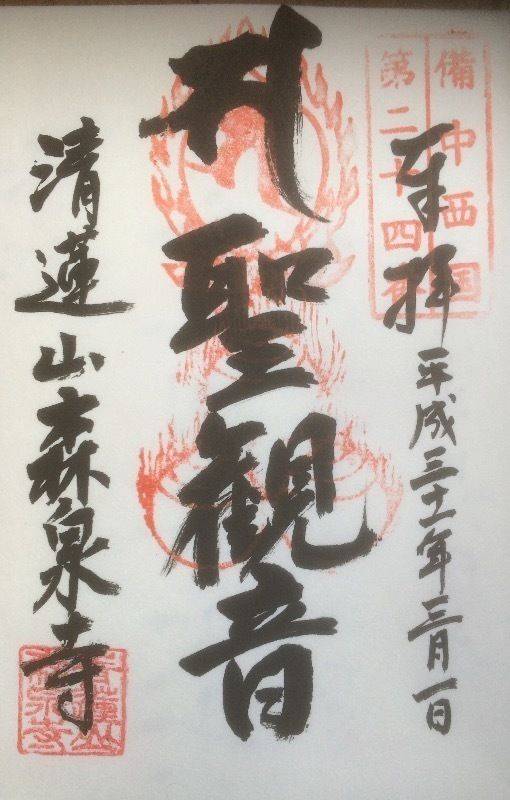 備中西国
第二十四番
奉拝
平成三十一年三月一日
聖観音
清蓮山森泉寺